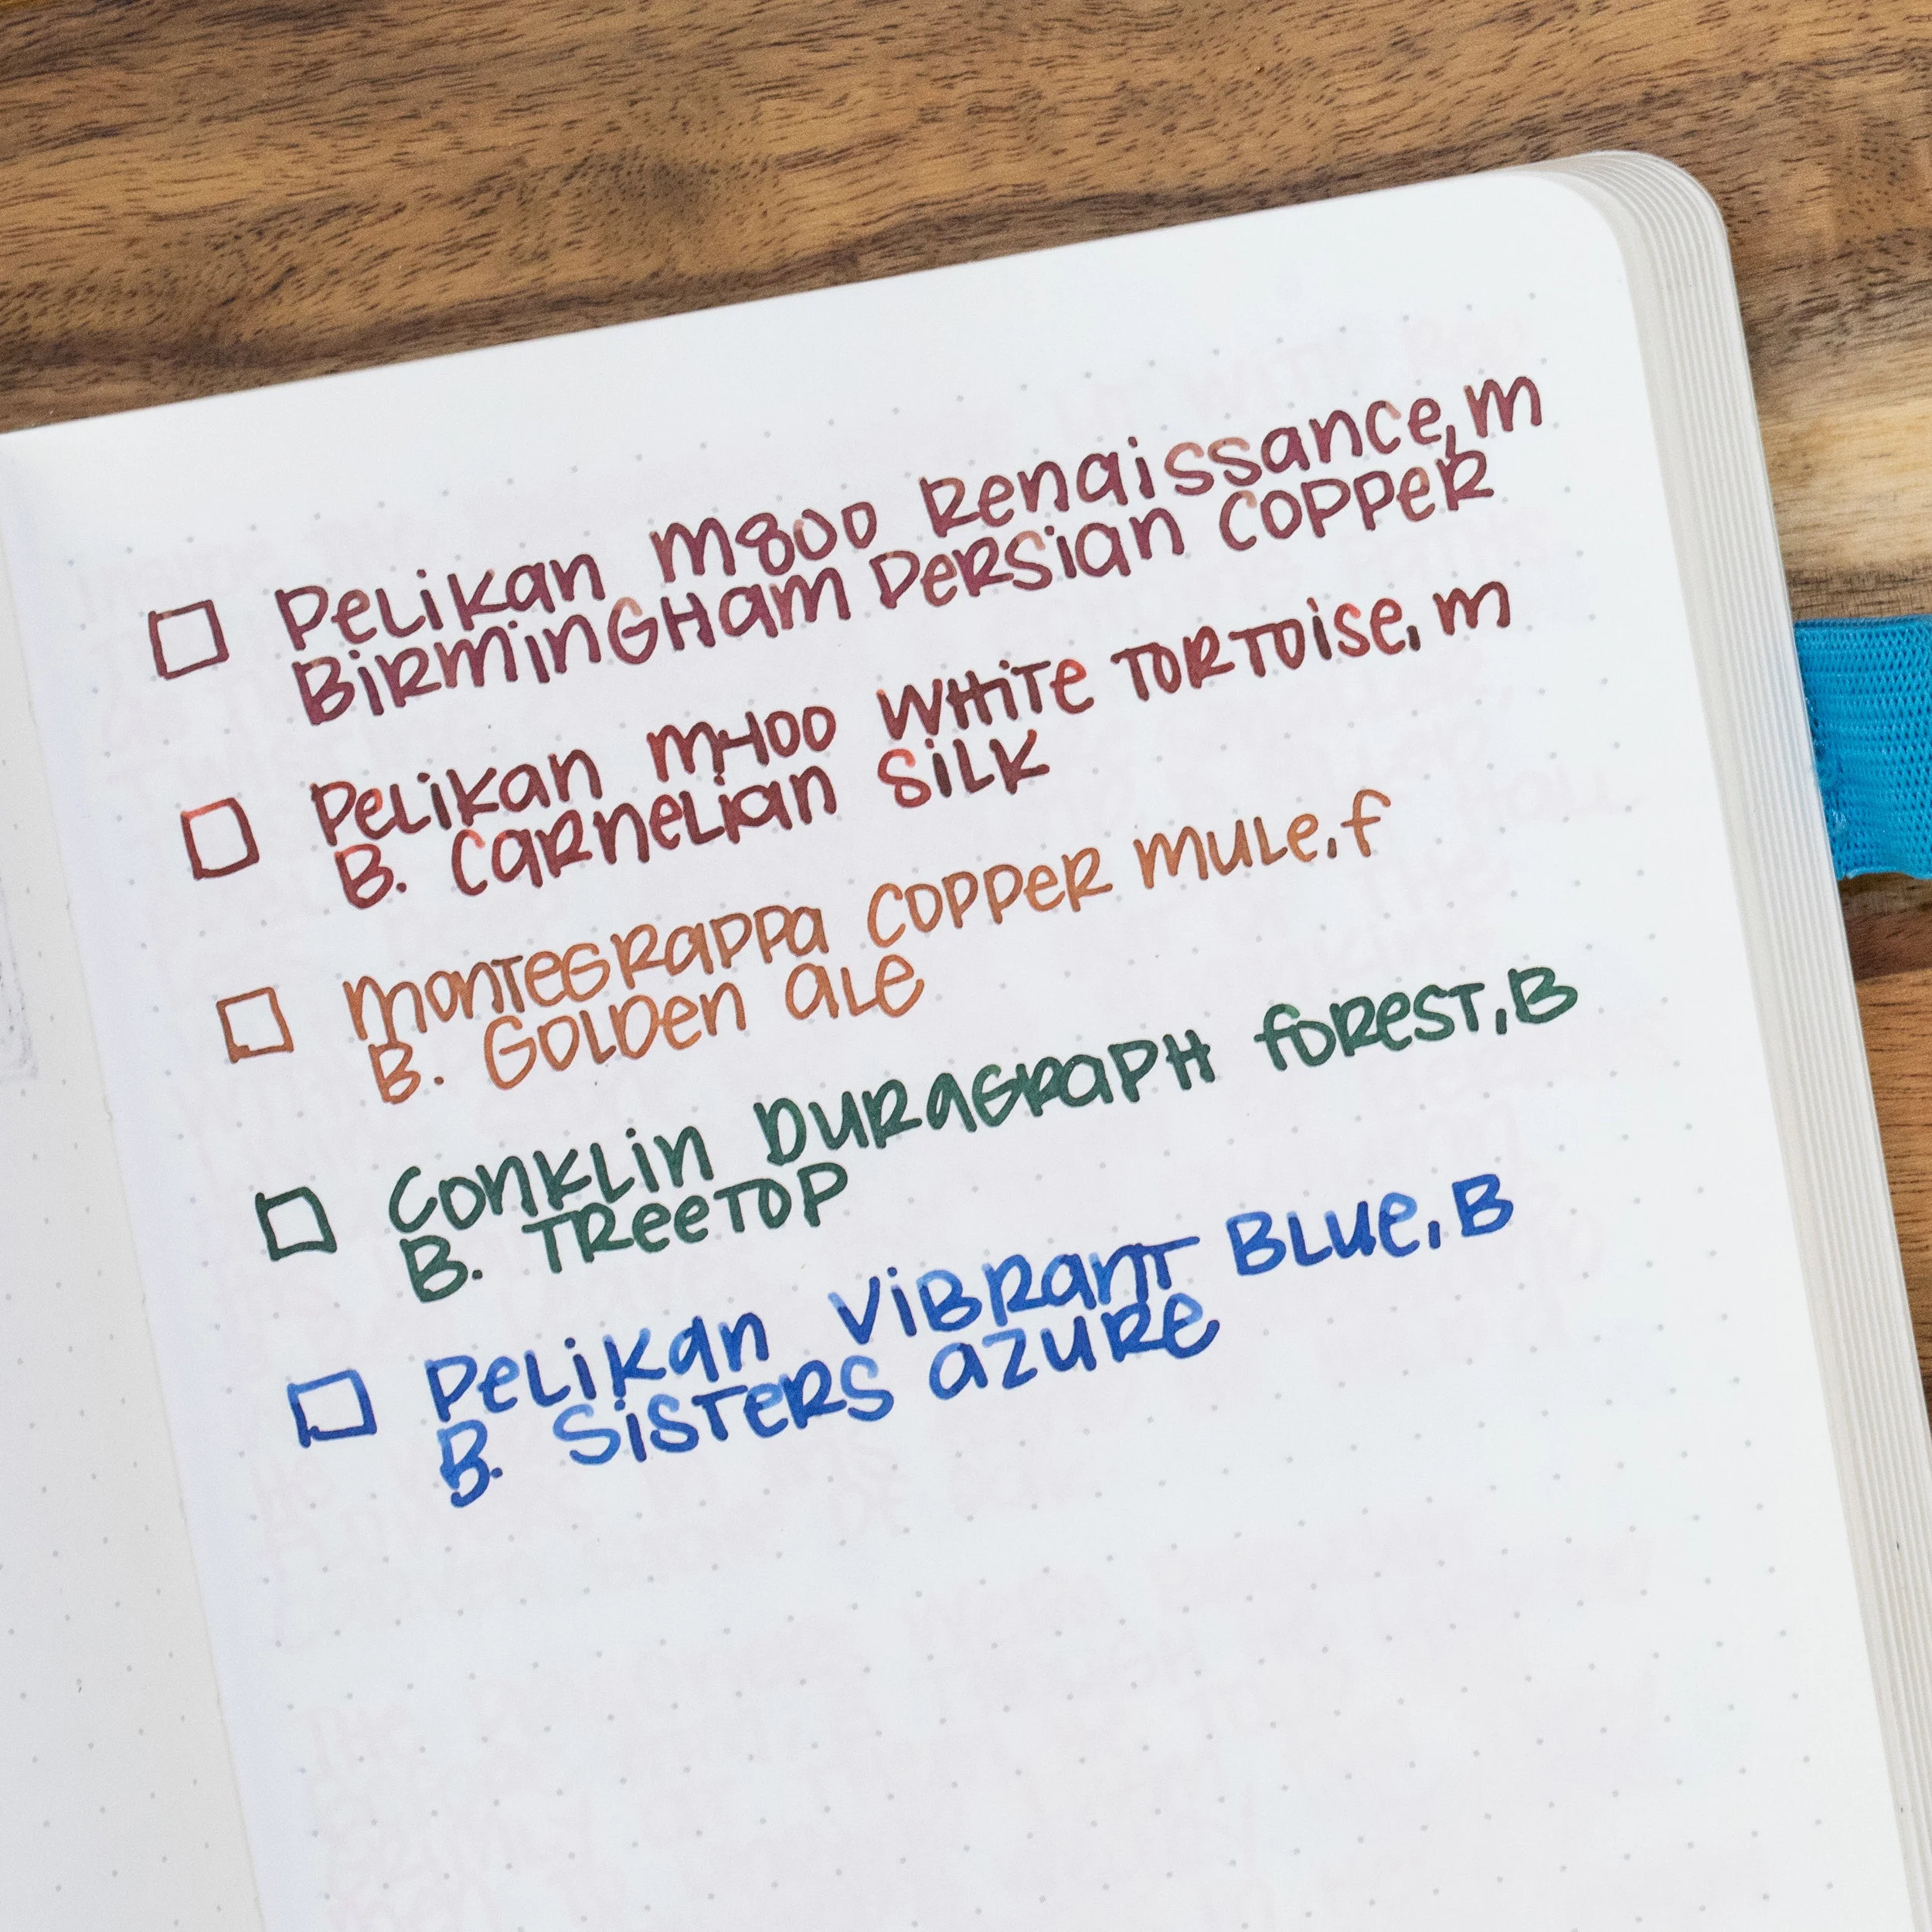 Pelikan M800 Renaissance, M
Birmingham Persian Copper
Pelikan M400 White Tortoise, M
B. Carnelian Silk
Montegrappa Copper Mule, F
B. Golden Ale
Conklin Duragraph Forest, B
B. Treetop
Pelikan Vibrant Blue, B
B. Sisters Azure